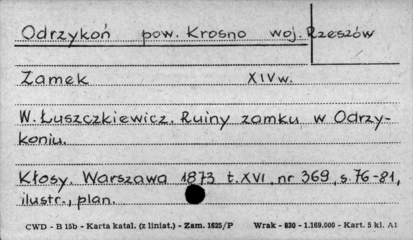 Odrzykoń pow. Krosno woj. Rzeszów
Zamek XIV w.
W. Łuszczkiewicz. Ruiny zamku w Odrzy-
koniu.
Kłosy. Warszawa 1873 t. XVI, nr 369, s. 76-81,
ilustr., plan.
CWD - B 15b - Karta katal. (z liniat.) - Zam. 1625/P Wrak - 830 - 1.169.000 - Kart. 5 kl. A1